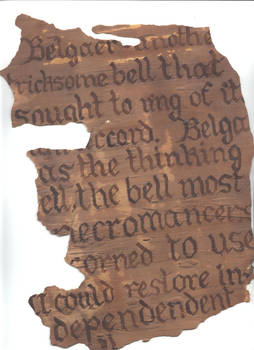 Belgaer another
tricksome bell that
sought to ring of it
accord. Belga
as the thinking
ell, the bell most
necromancers
corned to use
It could restore in-
dependendent